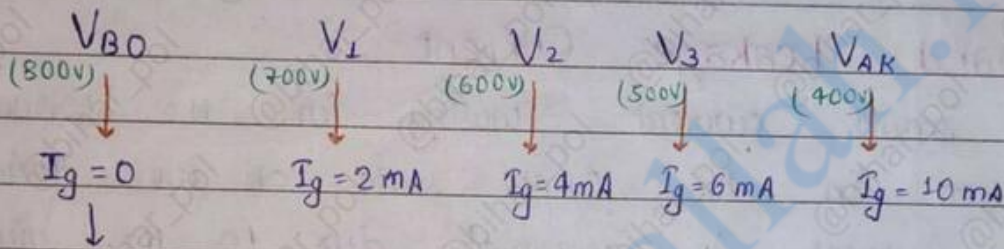 V_BO V_1 V_2 V_3 V_AK
(800V) (700V) (600V) (500V) (400V)
I_g = 0 I_g = 2 mA I_g = 4mA I_g = 6 mA I_g = 10 mA